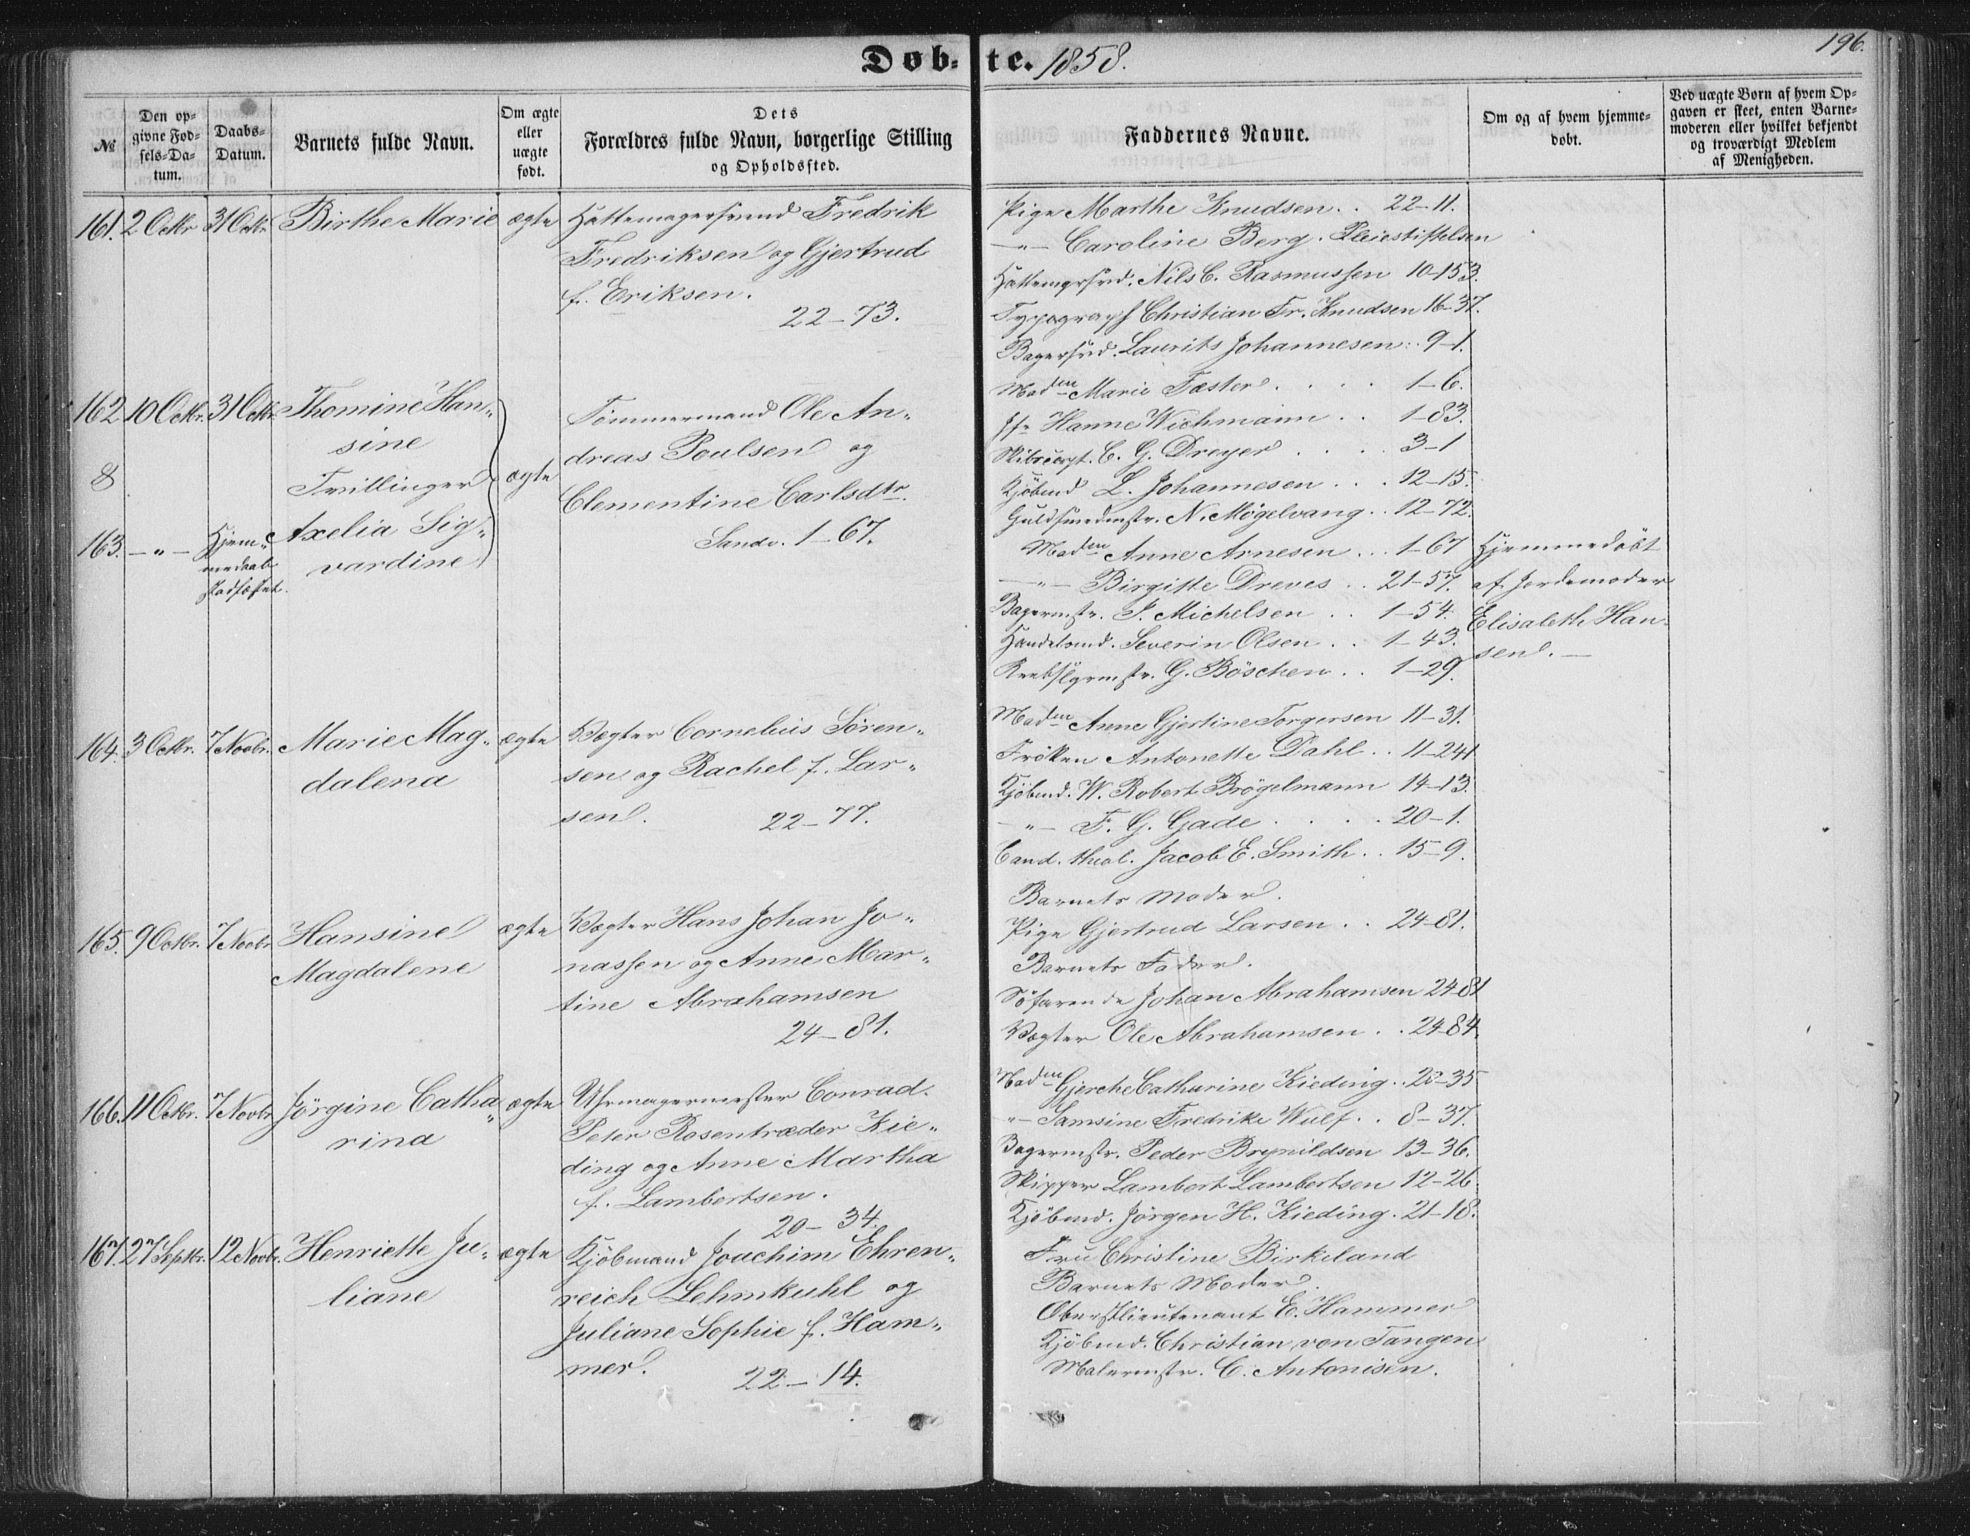 196.
Døbte. 1858.
№
Den opgivne Fødsels-Datum.
Daabs-Datum.
Barnets fulde Navn.
Om ægte eller uægte født.
Dets Forældres fulde Navn, borgerlige Stilling og Opholdssted.
Faddernes Navne.
Om og af hvem hjemmedøbt.
Ved uægte Børn af hvem Opgaven er skeet, enten Barnemoderen eller hvilket bekjendt og troværdigt Medlem af Menigheden.
161. 2 Octbr 31 Octbr. Birthe Marie ægte Hattemagersvend Fredrik
Fredriksen og Gjertrud
f. Eriksen.
22-73.
Pige Marthe Knudsen . . 22-11.
—"— Caroline Berg. Pleiestiftelsen
Hattemgrsvd. Nils C. Rasmussen 10-153.
Typograph Christian Fr. Knudsen 16-37.
Bagersvd. Laurits Johannesen . . 9-1.
162. 10 Octbr. 31 Octbr. Thomine Han-
sine
Tvillinger
&
ægte
Tømmermand Ole An-
dreas Poulsen og
Clementine Carlsdtr.
Sandv. 1-67.
163. —"— Hjem-
medaab
stadfæstet.
Axelia Sig-
vardine
Maden Marie Fæster . . . . 1-6.
Jfr Hanne Wichmann . . 1-83.
Skibscapt. C. G. Dreyer . . . . 3-1
Kjøbmd L. Johannesen . . . 12-15.
Guldsmedmstr. N. Møgelvang . . 12-72.
Maden Anne Arnesen . . . 1-67
—"— Birgitte Dreves . . 21-57.
Bagermstr. P. Michelsen . . 1-54.
Handelsmd. Severin Olsen . . 1-43.
Rebslgrmstr. G. Bøschen . . 1-29.
Hjemmedøbt
af Jordemoder
Elisabeth Han-
sen. —
164. 3 Octbr. 7 Novbr. Marie Mag-
dalena
ægte
Vægter Cornelius Søren-
sen og Rachel f. Lar-
sen.
22-77.
Maden Anne Gjertine Torgersen 11-31.
Frøken Antonette Dahl . . 11-241
Kjøbmd. W. Robert Brøgelmann 14-13.
—"— F. G. Gade . . . . 20-1.
Cand. theol. Jacob E. Smith . . 15-9.
165. 9 Octbr. 7 Novbr Hansine
Magdalene
ægte
Vægter Hans Johan Jo-
nassen og Anne Mar-
tine Abrahamsen
24-81.
Barnets Moder.
Pige Gjertrud Larsen . . 24-81.
Barnets Fader.
Søfarende Johan Abrahamsen 24-81
Vægter Ole Abrahamsen . . 24-84.
166. 11 Octbr. 7 Novbr Jørgine Catha-
rina
ægte
Uhrmagermester Conrad
Peter Rosentræder Kie-
ding og Anne Martha
f. Lambertsen.
20-34.
Maden Gjerche Catharine Kieding . 20-35
—"— Samsine Fredrike Wulf . . 8-37.
Bagermstr. Peder Brynildsen 13-36.
Skipper Lambert Lambertsen 12-26.
Kjøbmd. Jørgen H. Kieding . 21-18.
167. 27 Septbr. 12 Novbr. Henriette Ju-
liane
ægte
Kjøbmand Joachim Ehren-
reich Lehmkuhl og
Juliane Sophie f. Ham-
mer.
22-14.
Fru Christine Birkeland
Barnets Moder.
Oberstlieutenant E. Hammer
Kjøbmd. Christian von Tangen
Malermstr. C. Antonisen.